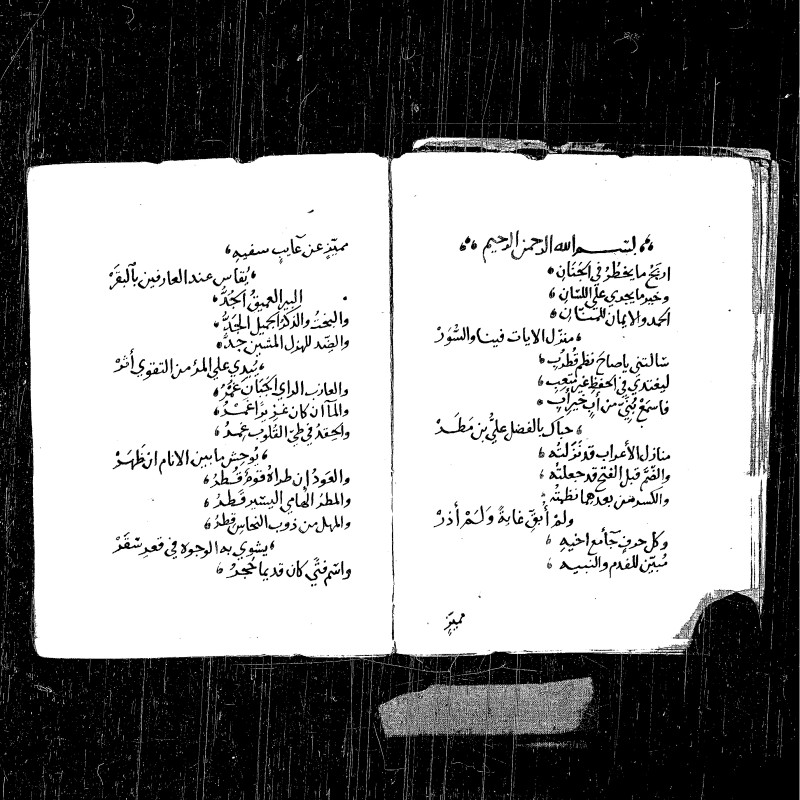 بسم الله الرحمن الرحيم
ارتج ما يخطر في الجنان
وخير ما يجدي على اللسان
الحمد والايمان للمنان
منزل الايات فينا والسور
سالتني ياصاح نظم قطرب
ليغتدي في الحفظ غير متعب
فاسمع بني من اب خير اب
حباك بالفضل علي بن مطر
منازل الأعراب قد نزلته
والضم قبل الفتح قد جعلته
والكسر من بعدهما نظمته
ولم أبق غاية ولم أذر
وكل حرف جامع اخيه
مبين للفدم والنبيه
مميز
مميز عن عايب سفيه
يقاس عند العارفين بالبقر
البير العميق الجد
والبخت والذكر الجميل الجد
والضد للهزل المتين جد
يبدي على المرء من التقوي أثر
والعازب الراي الجبان غمر
والمآ ان كان غزيرا غمر
والحقد في طي القلوب غمر
يوحش ما بين الانام ان ظهر
والعود إن طراة قوم قطر
والمطر الهامي اليسير قطر
والمهل من ذوب النحاس قطر
يشوي به الوجوه في قعر سقر
واسم فتي كان قديما حجر